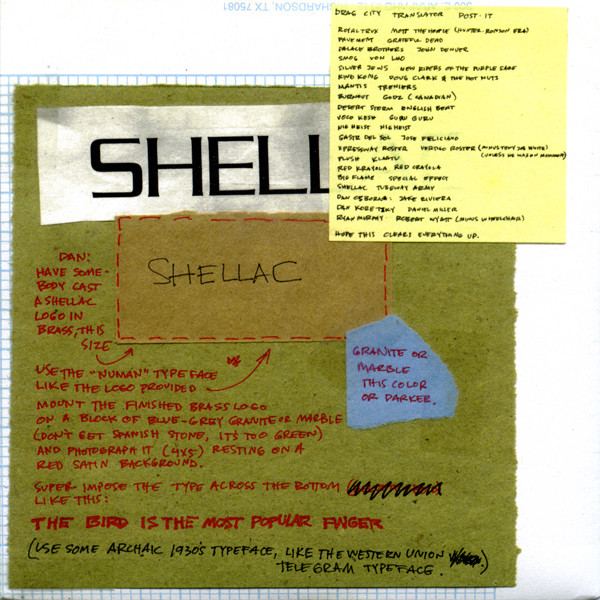 RICHARDSON, TX 75081
DRAG CITY TRANSLATOR POST-IT
ROYAL TRUX MOTT THE HOOPLE (HUNTER-RONSON ERA)
PAVEMENT GRATEFUL DEAD
PALACE BROTHERS JOHN DENVER
SMOG VON LMO
SILVER JEWS NEW RIDERS OF THE PURPLE SAGE
KING KONG DOUG CLARK & THE HOT NUTS
MANTIS TRENIERS
BURNOUT GODZ (CANADIAN)
DESERT STORM ENGLISH BEAT
VOCOKESH GURU GURU
NIG HEIST NIG HEIST
GASTR DEL SOL JOSE FELICIANO
XPRESSWAY ROSTER VERTIGO ROSTER (MINUS TONY JOE WHITE)
(UNLESS DE MAZON MCKINNON)
PLUSH KLAATU
RED KRAYOLA RED CRAYOLA
BIG FLAME SPECIAL EFFECT
SHELLAC TUBEWAY ARMY
DAN OSBORNE: JAKE RIVIERA
DAN KORETZKY DANIEL MILLER
RYAN MURPHY ROBERT WYATT (MINUS WHEELCHAIR)
HOPE THIS CLEARS EVERYTHING UP.
SHELL
SHELLAC
DAN:
HAVE SOME-
BODY CAST
A SHELLAC
LOGO IN
BRASS, THIS
SIZE
USE THE "NUMAN" TYPEFACE
LIKE THE LOGO PROVIDED
GRANITE OR
MARBLE
THIS COLOR
OR DARKER.
MOUNT THE FINISHED BRASS LOGO
ON A BLOCK OF BLUE-GREY GRANITE OR MARBLE
(DON'T GET SPANISH STONE, IT'S TOO GREEN)
AND PHOTOGRAPH IT (4x5) RESTING ON A
RED SATIN BACKGROUND.
SUPER IMPOSE THE TYPE ACROSS THE BOTTOM
LIKE THIS:
THE BIRD IS THE MOST POPULAR FINGER
(USE SOME ARCHAIC 1930'S TYPEFACE, LIKE THE WESTERN UNION
TELEGRAM TYPEFACE.)